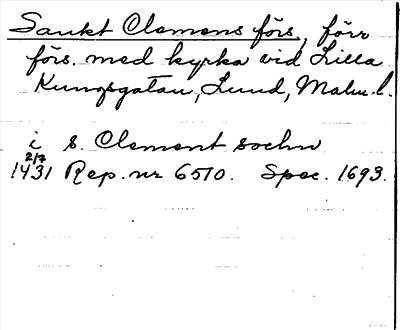 Sankt Clemens förs., förr
förs. med kyrka vid Lilla
Kungsgatan, Lund, Malm. l.
i s. Clement sochn
2/7
1431 Rep. nr 6510. Spec. 1693.